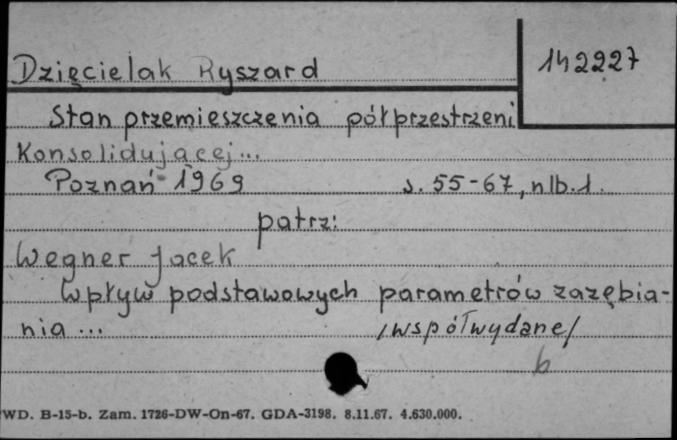 Dzięcielak Ryszard
142227
Stan przemieszczenia półprzestrzeni
Konsolidującej...
Poznań 1969 s. 55-67, nlb.1.
patrz:
Wegner Jacek
Wpływ podstawowych parametrów zazębia-
nia ... /współwydane/
b
WD. B-15-b. Zam. 1726-DW-On-67. GDA-3198. 8.11.67. 4.630.000.